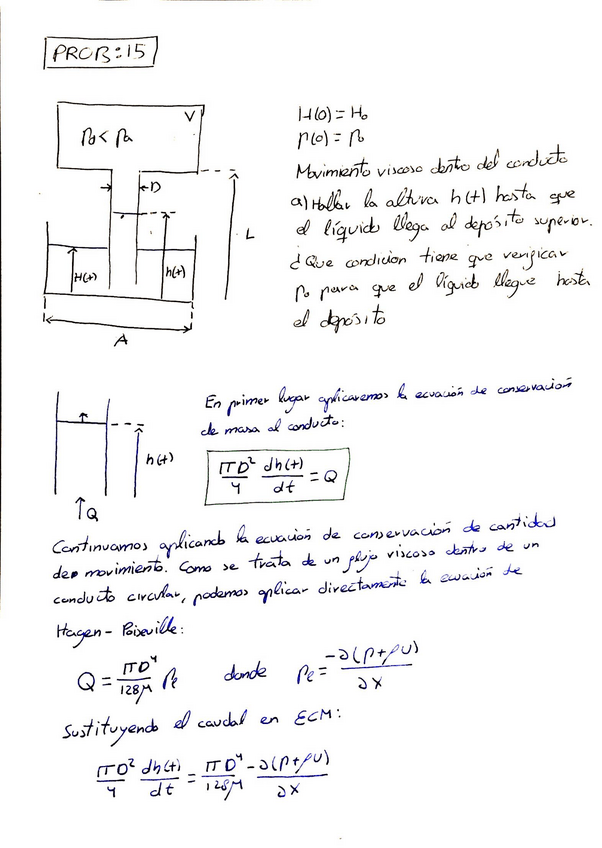 PROB:15
V
P₀ < Pa
D
L
H(t)
h(t)
A
H(0) = H₀
P(0) = P₀
Movimiento viscoso dentro del conducto
a) Hallar la altura h(t) hasta que
el líquido llega al depósito superior.
¿Que condicion tiene que verificar
P₀ para que el líquido llegue hasta
el depósito
En primer lugar aplicaremos la ecuación de conservación
de masa al conducto:
h(t)
πD²/4 dh(t)/dt = Q
↑Q
Continuamos aplicando la ecuación de conservación de cantidad
de movimiento. Como se trata de un flujo viscoso dentro de un
conducto circular, podemos aplicar directamente la ecuación de
Hagen-Poiseville:
Q = πD⁴/128μ Pe donde Pe = -∂(P+ρU)/∂x
Sustituyendo el caudal en ECM:
πD²/4 dh(t)/dt = πD⁴/128μ -∂(P+ρU)/∂x